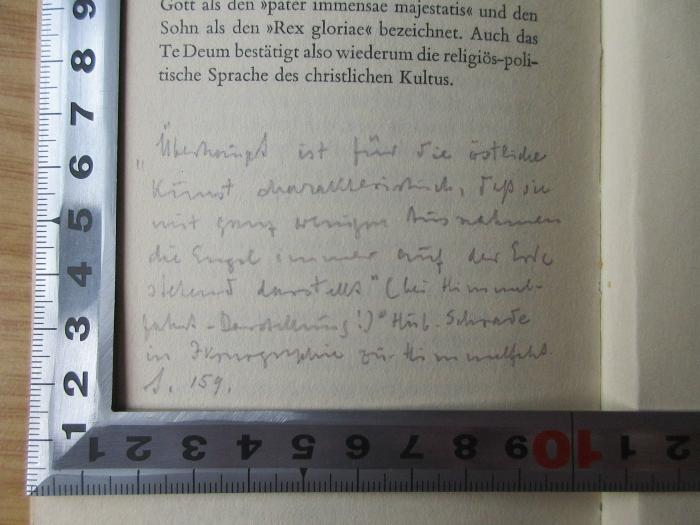 Gott als den »pater immensae majestatis« und den
Sohn als den »Rex gloriae« bezeichnet. Auch das
Te Deum bestätigt also wiederum die religiös-poli-
tische Sprache des christlichen Kultus.
"Überhaupt ist für die östliche
Kunst charakteristisch, daß sie
mit ganz wenigen Ausnahmen
die Engel immer auf der Erde
stehend darstellt" (bei Himmel-
fahrt-Darstellung!) Hub. Schrade
in Ikonographie zur Himmelfahrt
S. 159.
9
8
7
6
5
4
3
2
1
1 2 3 4 5 6 7 8 9 10 1 2